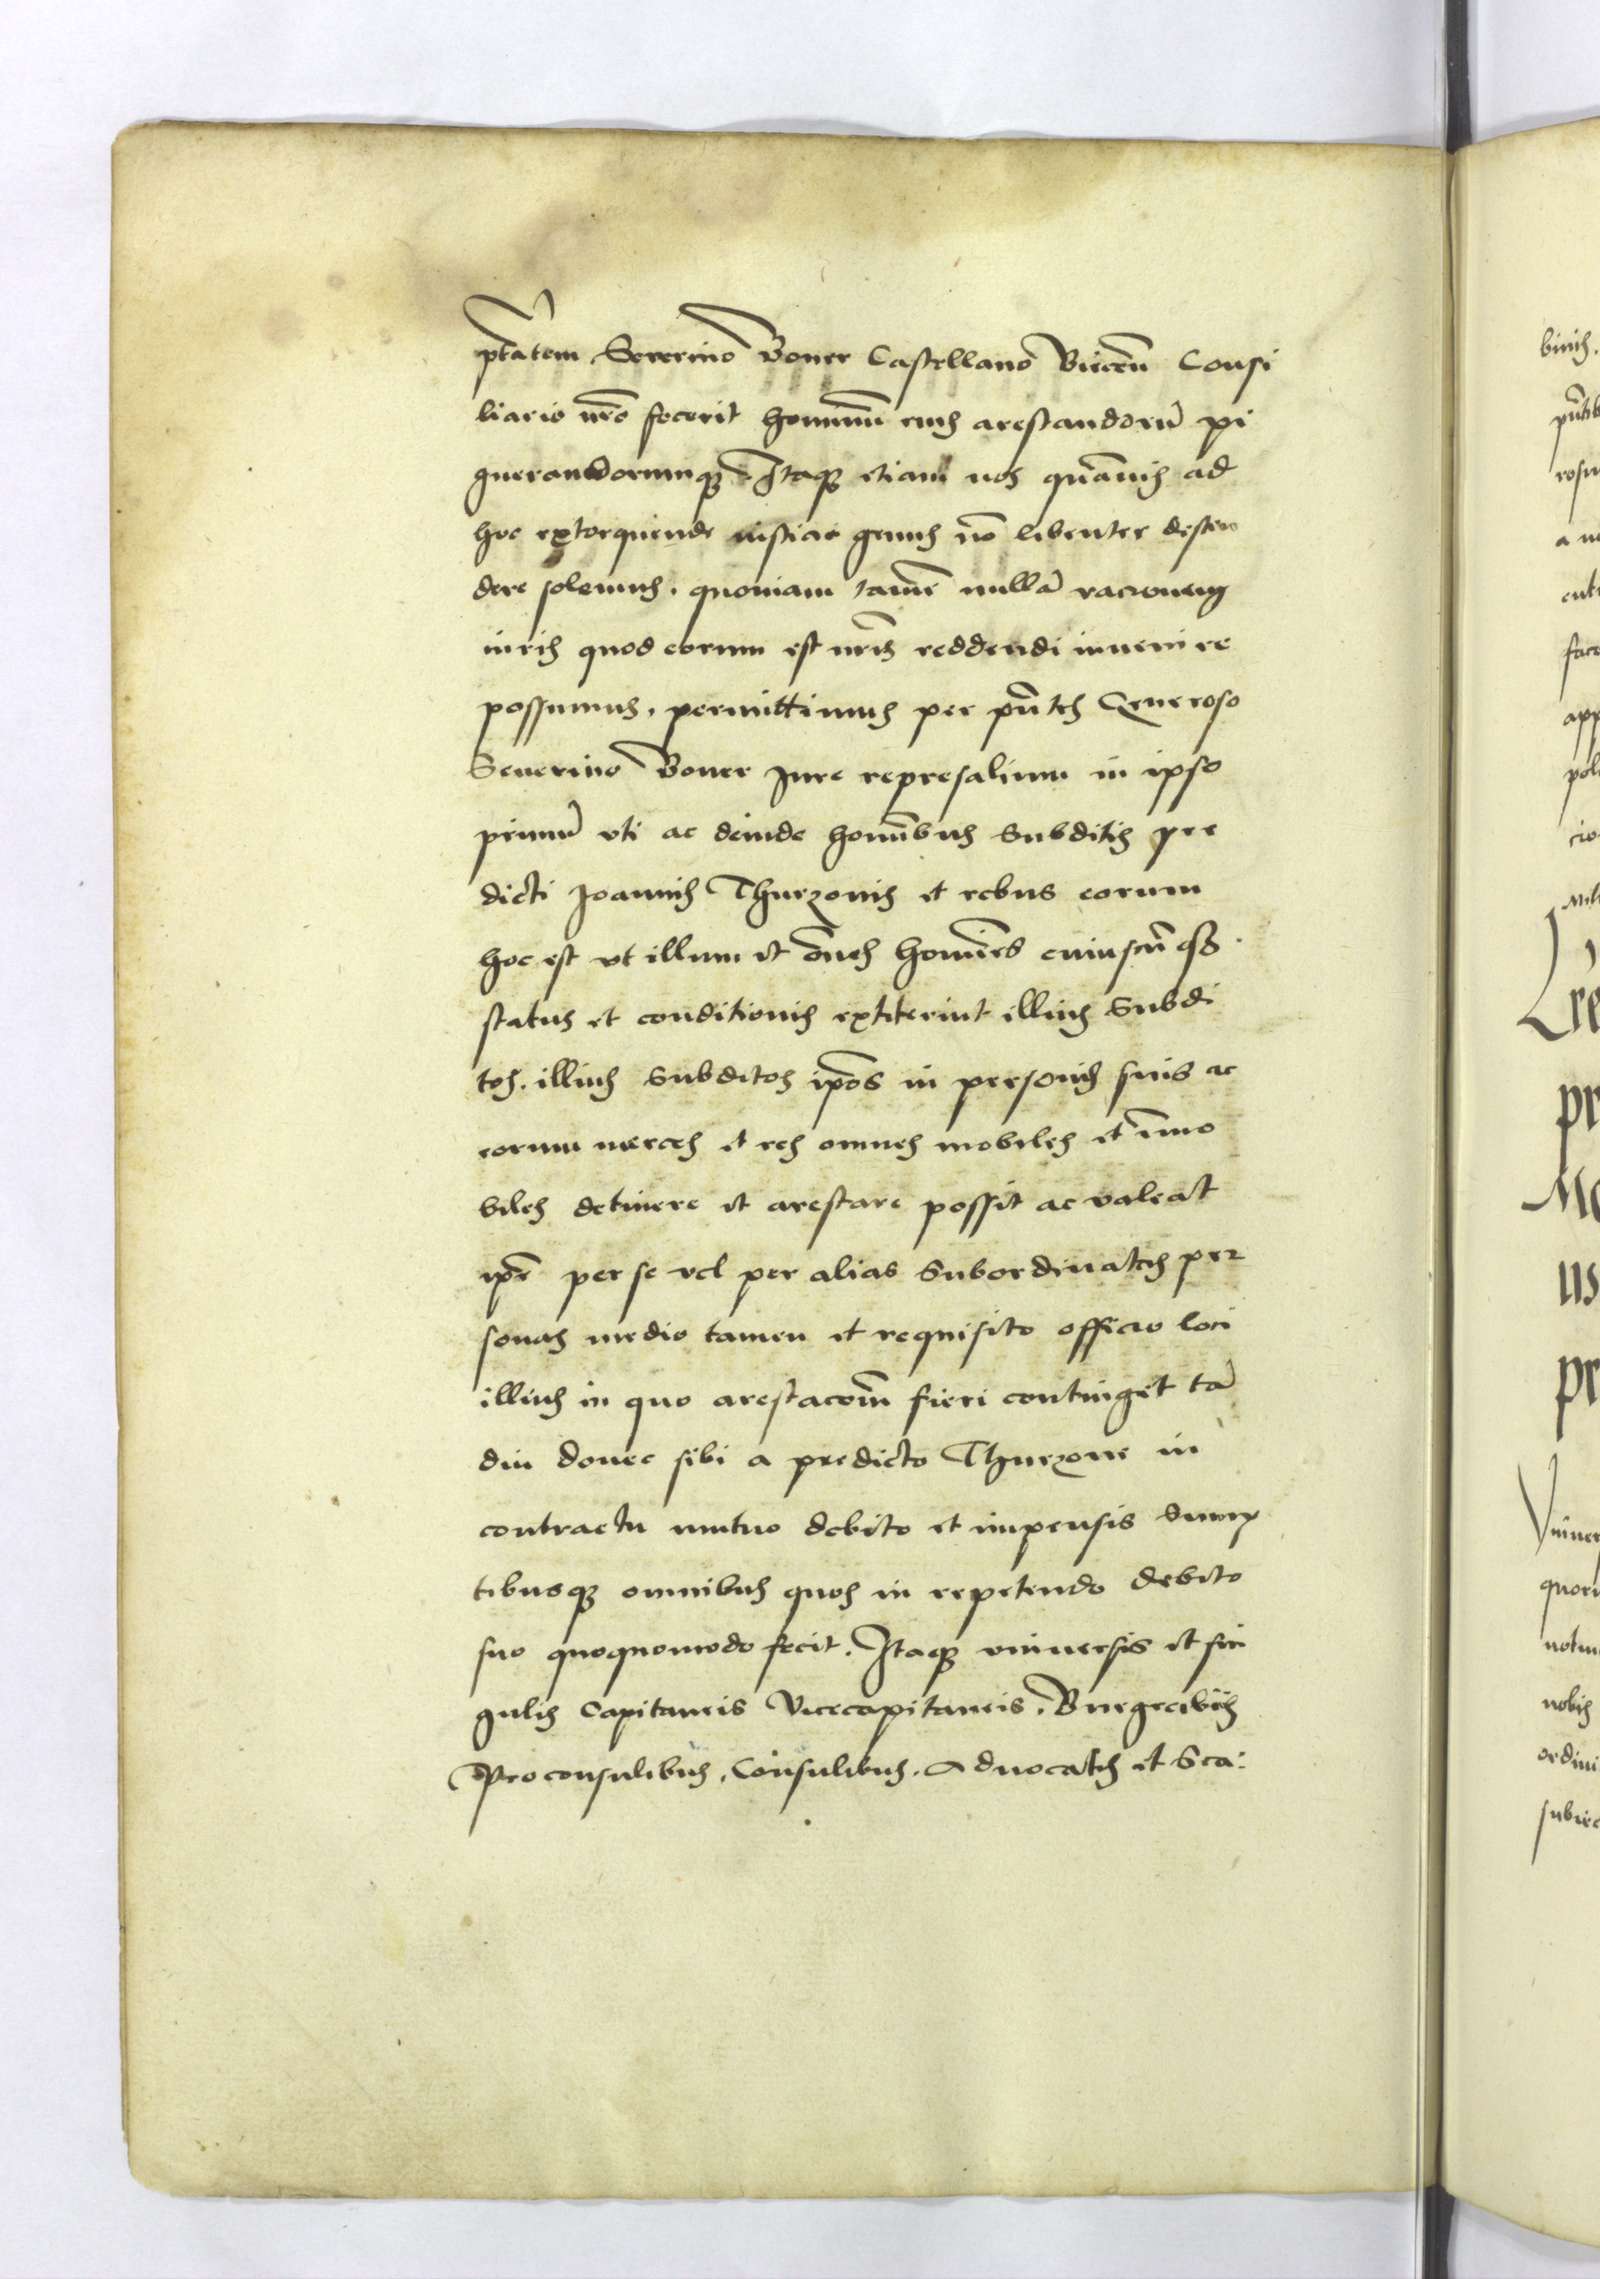 ptatem Severino Boner Castellano Biecen̄ Consi
liario nr̄o fecerit hominum eius arestandorū pi
gnerandorumq. Itaq etiam nos quāuis ad
hoc extorquende iusticie genus nō libenter descen
dere solemus. quoniam tamē nullā racionem
iuris quod eorum est nr̄is reddendi invenire
possumus. permittimus per pn̄tes Generoso
Severino Boner Jure represalium in ipso
primū vti ac deinde hominībus Subditis pre
dicti Joannis Thurzonis et rebus eorum
hoc est vt illum et om̄es homines cuiuscūq
status et conditionis extiterint illius Subdi
tos. illius Subditos ip̄os in personis suis ac
eorum merces et res omnes mobiles et im̄o
biles detinere et arestare possit ac valeat
ip̄e per se vel per alias Subordinatas per
sonas medio tamen et requisito officio loci
illius in quo arestacōem fieri continget tā
diu donec sibi a predicto Thurzone in
contractu mutuo debito et impensis Sump
tibusq omnibus quos in repetendo debito
suo quoquomodo fecit. Itaq vniversis et sin
gulis Capitaneis Vicecapitaneis. Burgrabiis
Proconsulibus. Consulibus. Advocatis et Sca: